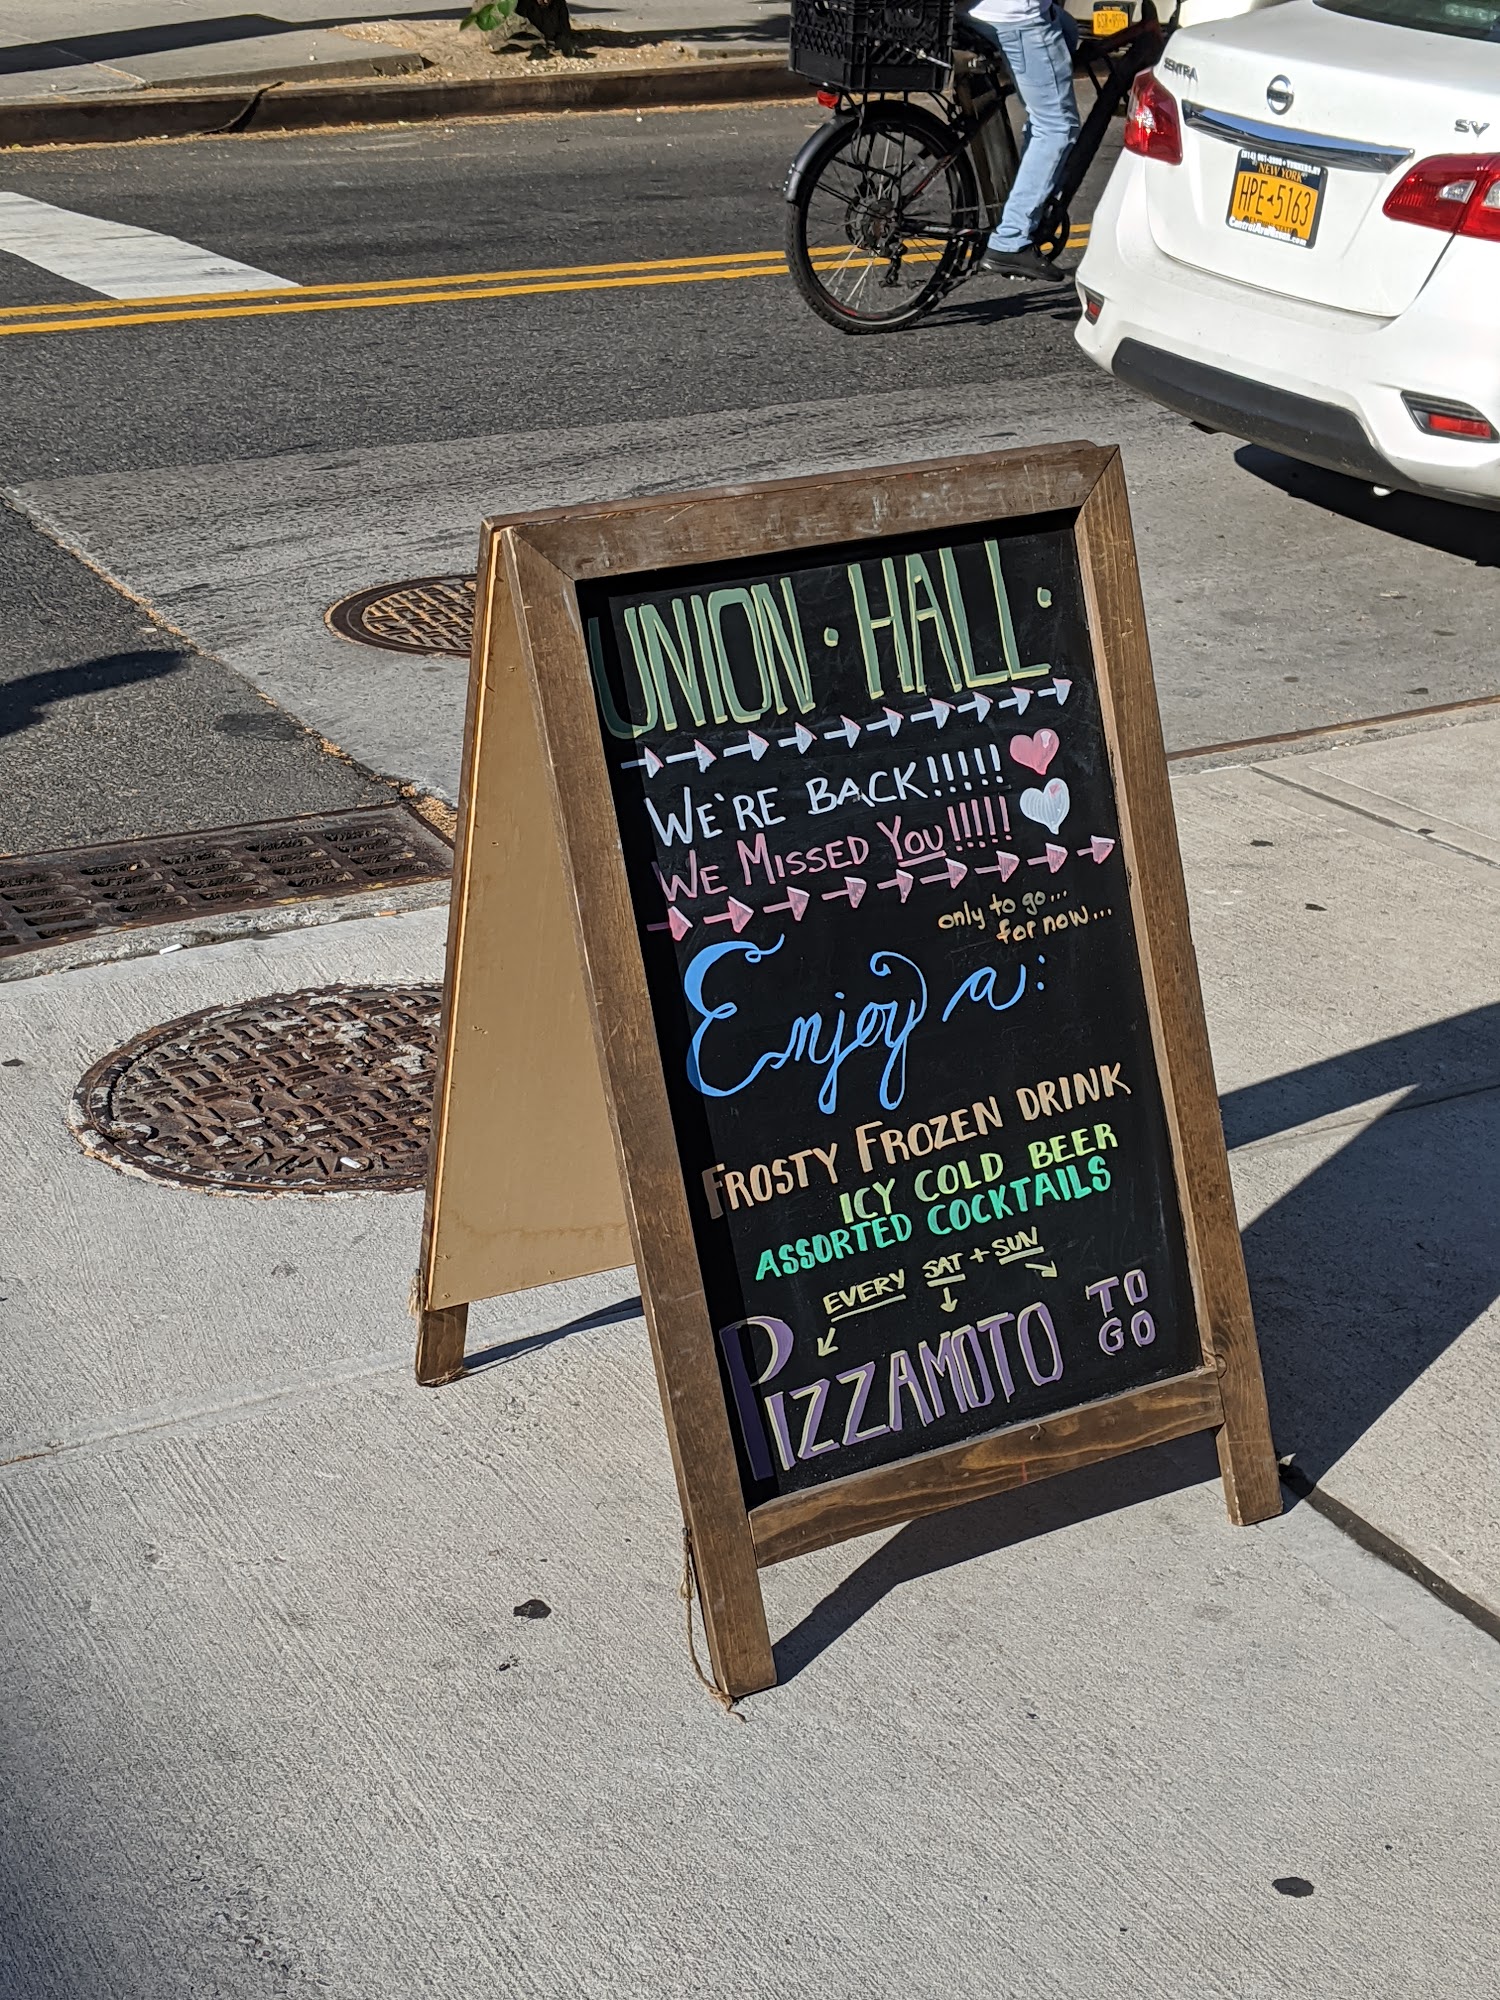 SENTRA
SV
NEW YORK
HPE 5163
UNION · HALL ·
WE'RE BACK!!!!!
WE MISSED YOU!!!!!
only to go...
for now...
Enjoy a:
FROSTY FROZEN DRINK
ICY COLD BEER
ASSORTED COCKTAILS
EVERY SAT + SUN
PIZZAMOTO TO GO